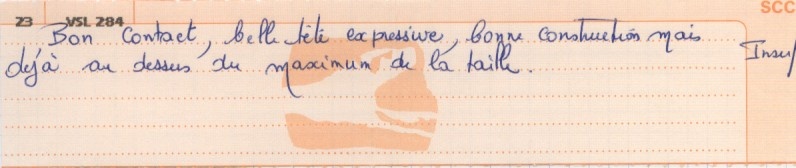 SCC
23 VSL 284
Bon Contact, belle tête expressive, bonne construction mais
déjà au dessus du maximum de la taille.
Insuf